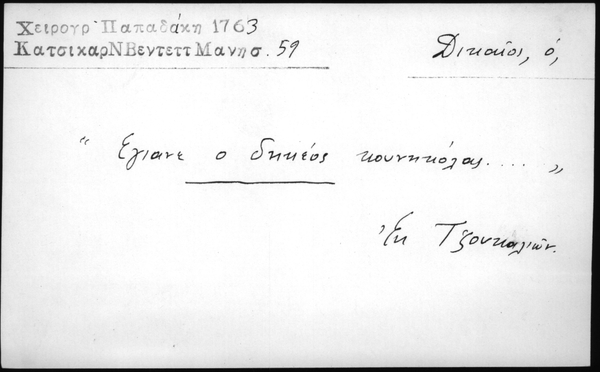 Χειρογρ. Παπαδάκη 1763
ΚατσικαρΝΒεντεττΜανησ. 59
Δικαῖοι, ὁ,
“ Εγιανε ο δηκέος κουνηκόλας.... „
Ἐκ Τζουκαλιῶν.